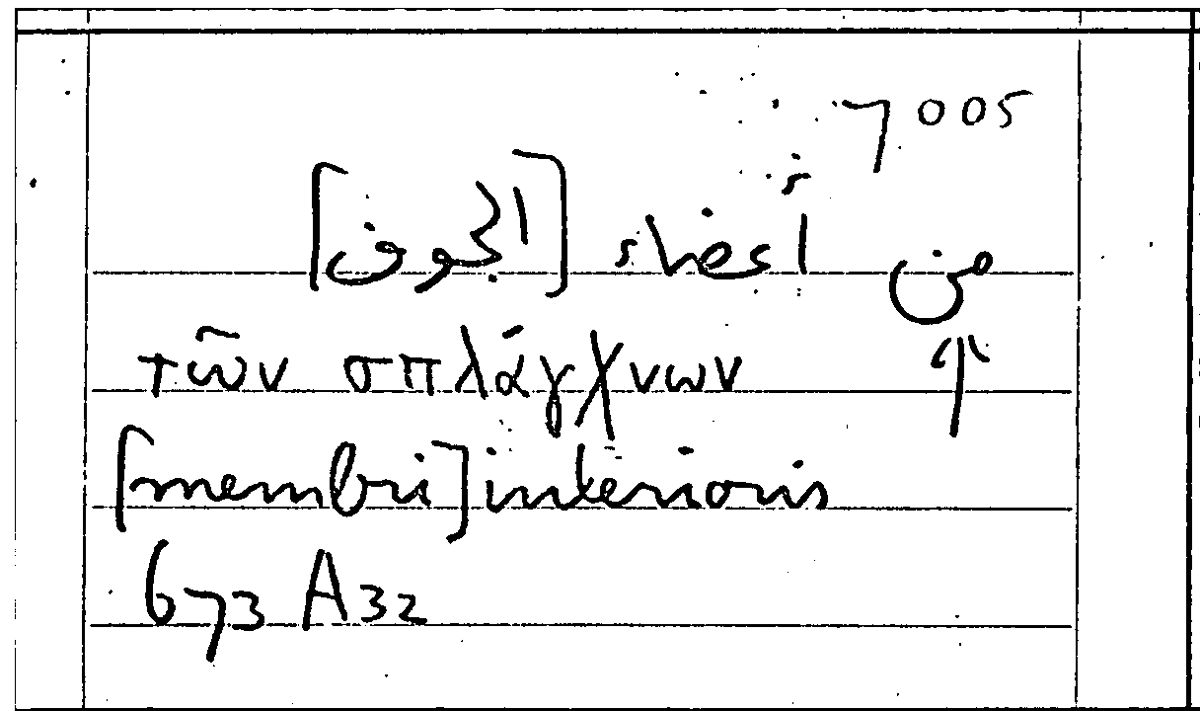 7005
من أعضاء [الجوف]
τῶν σπλάγχνων ↑
[membri] interioris
673 A32